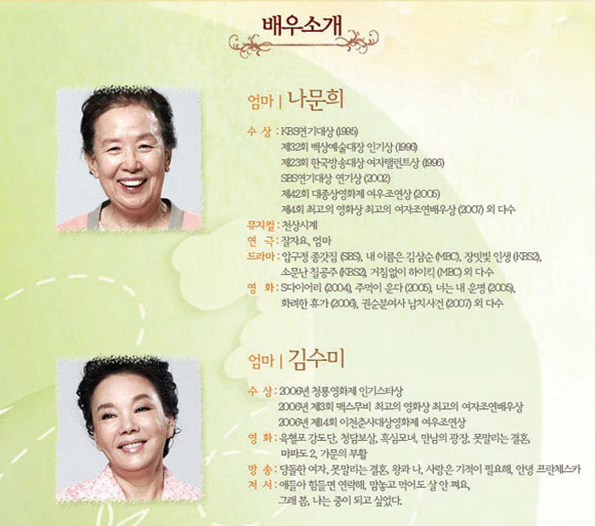 배우소개
엄마 | 나문희
수 상 : KBS연기대상 (1995)
제32회 백상예술대상 인기상 (1996)
제23회 한국방송대상 여자탤런트상 (1996)
SBS연기대상 연기상 (2002)
제42회 대종상영화제 여우조연상 (2005)
제4회 최고의 영화상 최고의 여자조연배우상 (2007) 외 다수
뮤지컬 : 천상시계
연 극 : 잘자요, 엄마
드라마 : 압구정 종갓집 (SBS), 내 이름은 김삼순 (MBC), 장밋빛 인생 (KBS2),
소문난 칠공주 (KBS2), 거침없이 하이킥 (MBC) 외 다수
영 화 : S다이어리 (2004), 주먹이 운다 (2005), 너는 내 운명 (2005),
화려한 휴가 (2006), 권순분여사 납치사건 (2007) 외 다수
엄마 | 김수미
수 상 : 2006년 청룡영화제 인기스타상
2006년 제3회 맥스무비 최고의 영화상 최고의 여자조연배우상
2006년 제14회 이천춘사대상영화제 여우조연상
영 화 : 육혈포 강도단, 청담보살, 흑심모녀, 만남의 광장, 못말리는 결혼,
마파도 2, 가문의 부활
방 송 : 당돌한 여자, 못말리는 결혼, 왕과 나, 사랑은 기적이 필요해, 안녕 프란체스카
저 서 : 얘들아 힘들면 연락해, 맘놓고 먹어도 살 안 쪄요,
그래 봄, 나는 중이 되고 싶었다.